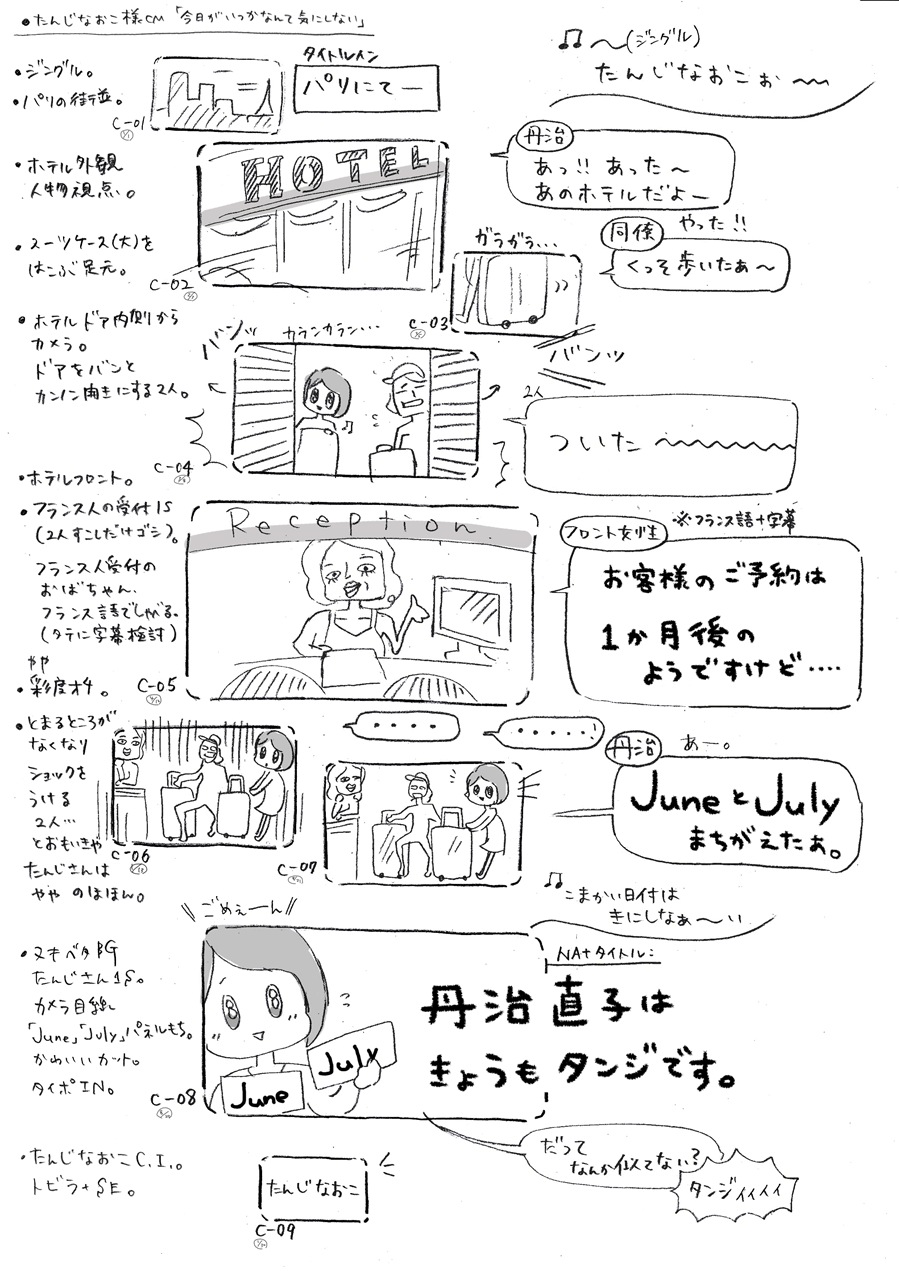 ●たんじなおこ様CM「今日がいつかなんて気にしない」
♫〜(ジングル)
たんじなおこぉ〜
●ジングル。
●パリの街並。
C-01
タイトルイン
パリにて―
●ホテル外観
人物視点。
C-02
丹治
あっ!! あった〜
あのホテルだよー
●スーツケース(大)を
はこぶ足元。
ガラガラ…
C-03
同僚
やった!!
くっそ歩いたぁ〜
●ホテルドア内側から
カメラ。
ドアをバンと
カンノン開きにする2人。
バンッ
カランカラン…
バンッ
C-04
2人
ついた〜
●ホテルフロント。
●フランス人の受付1S
(2人すこしだけゴシ)。
フランス人受付の
おばちゃん、
フランス語でしゃべる。
(タテに字幕検討)
やや
●彩度オチ。
C-05
Reception
フロント女性
※フランス語+字幕
お客様のご予約は
1か月後の
ようですけど‥‥
●とまるところが
なくなり
ショックを
うける
2人…
とおもいきや
たんじさんは
ややのほほん。
C-06
C-07
‥‥
‥‥‥
丹治
あー。
JuneとJuly
まちがえたぁ。
♫こまかい日付は
きにしなぁ〜い
ごめぇーん
●ヌキベタBG
たんじさん1S。
カメラ目線
「June」「July」パネルもち。
かわいいカット。
タイポIN。
C-08
June
July
NA+タイトル:
丹治直子は
きょうもタンジです。
だって
なんか似てない?
タンジィィィィ
・たんじなおこC.I.。
トビラ+SE。
たんじなおこ
C-09